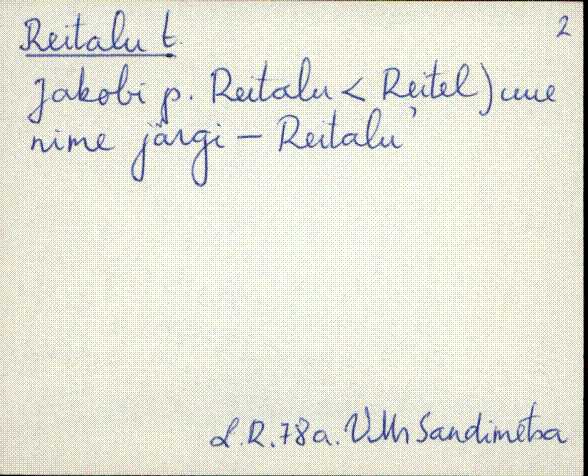 2
Reitalu t.
Jakobi p. Reitalu < Reitel) uue
nime järgi – Reitalu'
L.R. 78a. VMh Sandimetsa